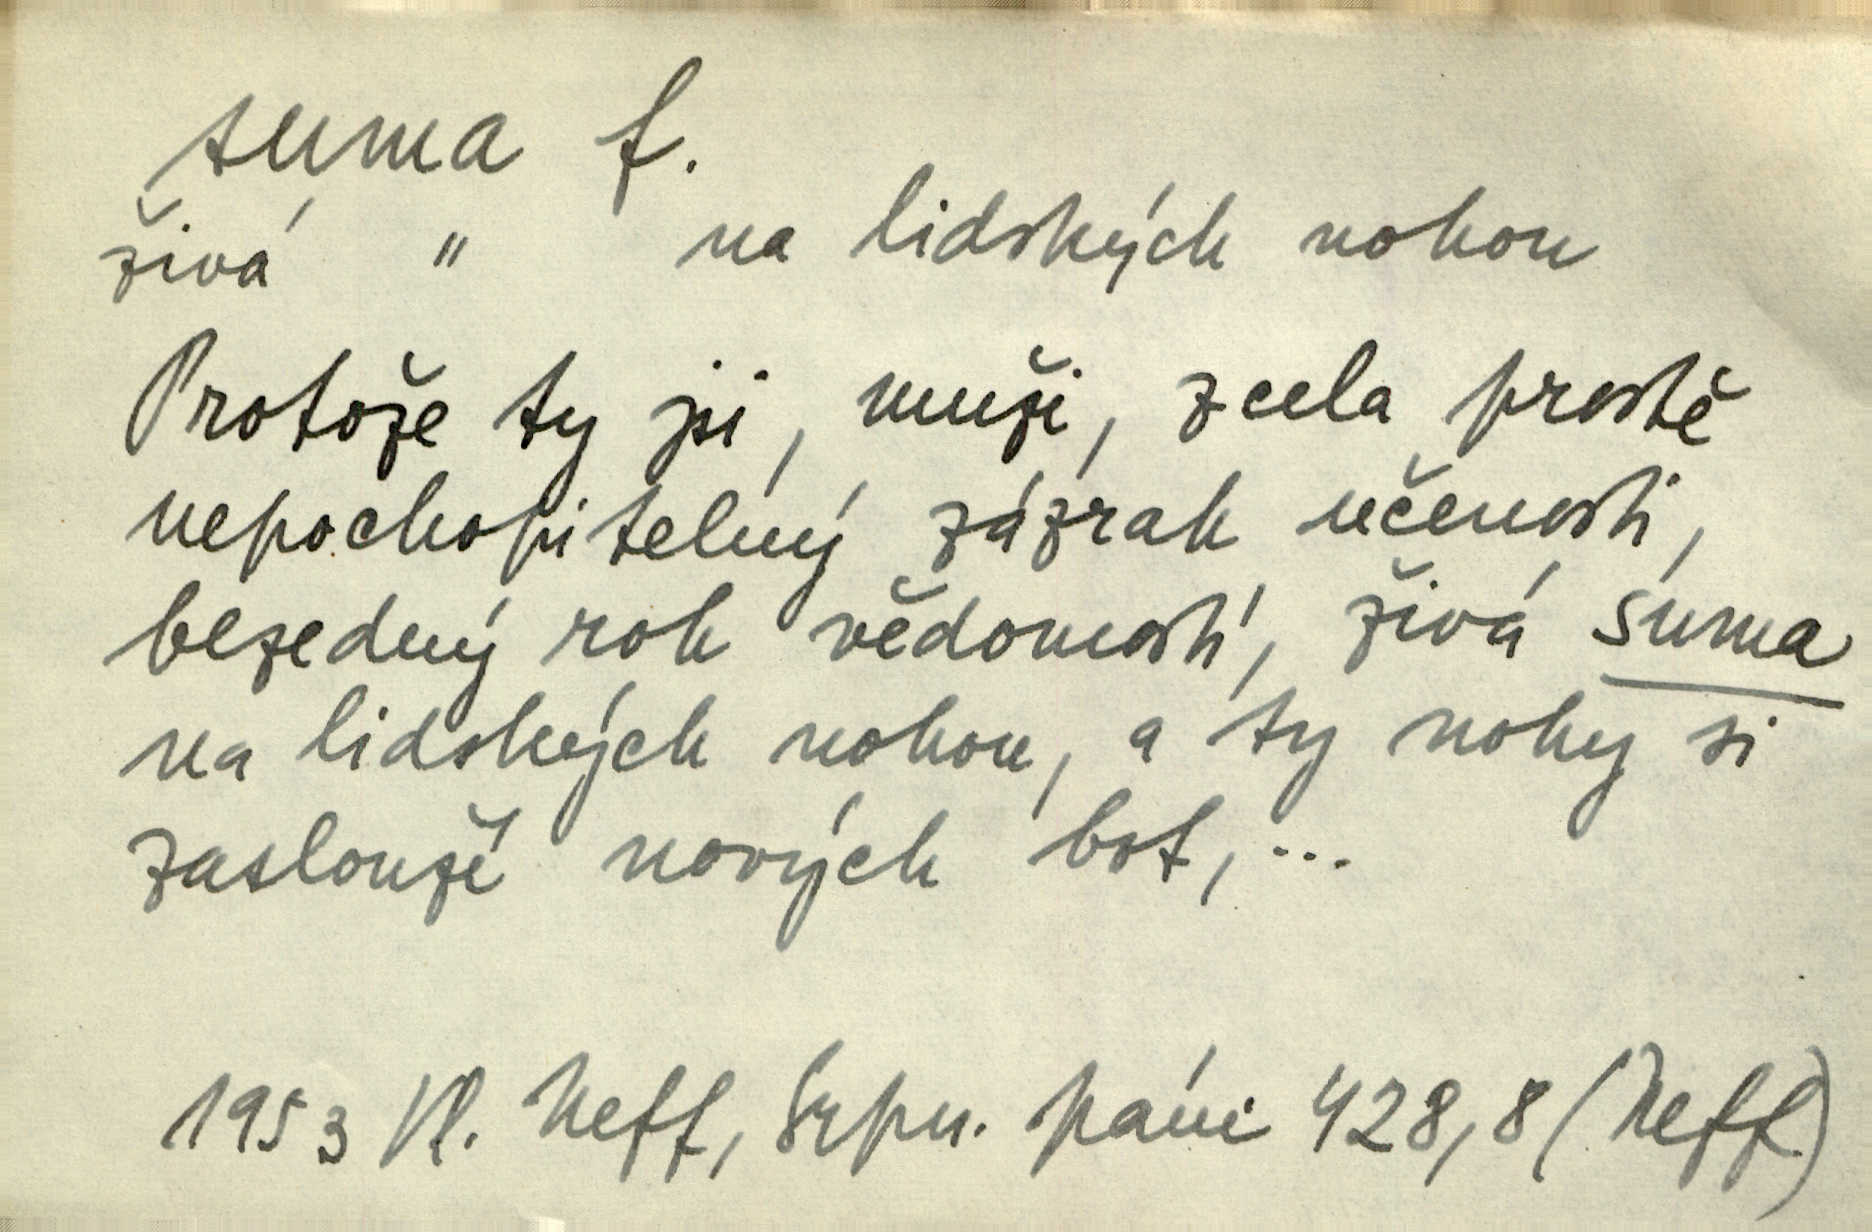 suma f.
živá " na lidských nohou
Protože ty jsi, muži, zcela prostě
nepochopitelný zázrak učenosti,
bezedný roh vědomostí, živá suma
na lidských nohou, a ty nohy si
zaslouží nových bot, ...
1953 Vl. Neff, Srpn. páni 428,8 (Neff)